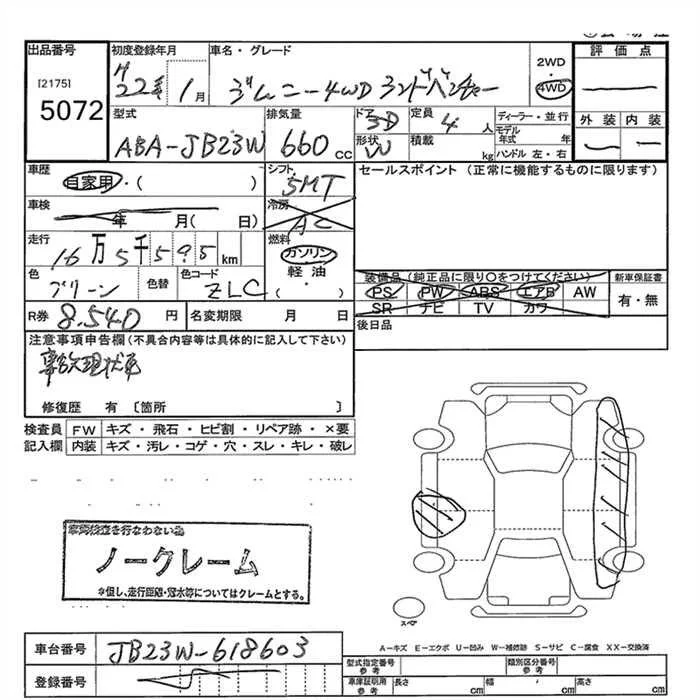 出品番号 初度登録年月 車名・グレード 2WD 評価点
[2175] H22年 1月 ジムニー4WD ランドベンチャー 4WD
5072
型式 排気量 ドア 定員 ディーラー・並行 外装 内装
ABA-JB23W 660cc 3D 4人 モデル年式 年
形状 積載 kg ハンドル 左・右
W
車歴 シフト セールスポイント (正常に機能するものに限ります)
自家用・( ) 5MT
車検 冷房
年 月( 日) AC
走行 燃料
16万5千595km ガソリン
色 色替 色コード 軽油・
グリーン ZLC ( )
装備品(純正品に限り○をつけてください) 新車保証書
PS PW ABS エアB AW 有・無
SR ナビ TV カワ
R券 8.540円 名変期限 月 日 後日品
注意事項申告欄(不具合内容等は具体的に記入して下さい)
修復歴 有 〔箇所 〕
検査員 FW キズ・飛石・ヒビ割・リペア跡・×要
記入欄 内装 キズ・汚レ・コゲ・穴・スレ・キレ・破レ
車両検査を行わない為
ノークレーム
※但し、走行距離・冠水等についてはクレームとする。
スペア
A-キズ E-エクボ U-凹み W-補修跡 S-サビ C-腐食 XX-交換済
車台番号 JB23W-618603
登録番号
型式指定番号 参考 類別区分番号 参考
車庫証明用 参考 長さ cm 幅 cm 高さ cm